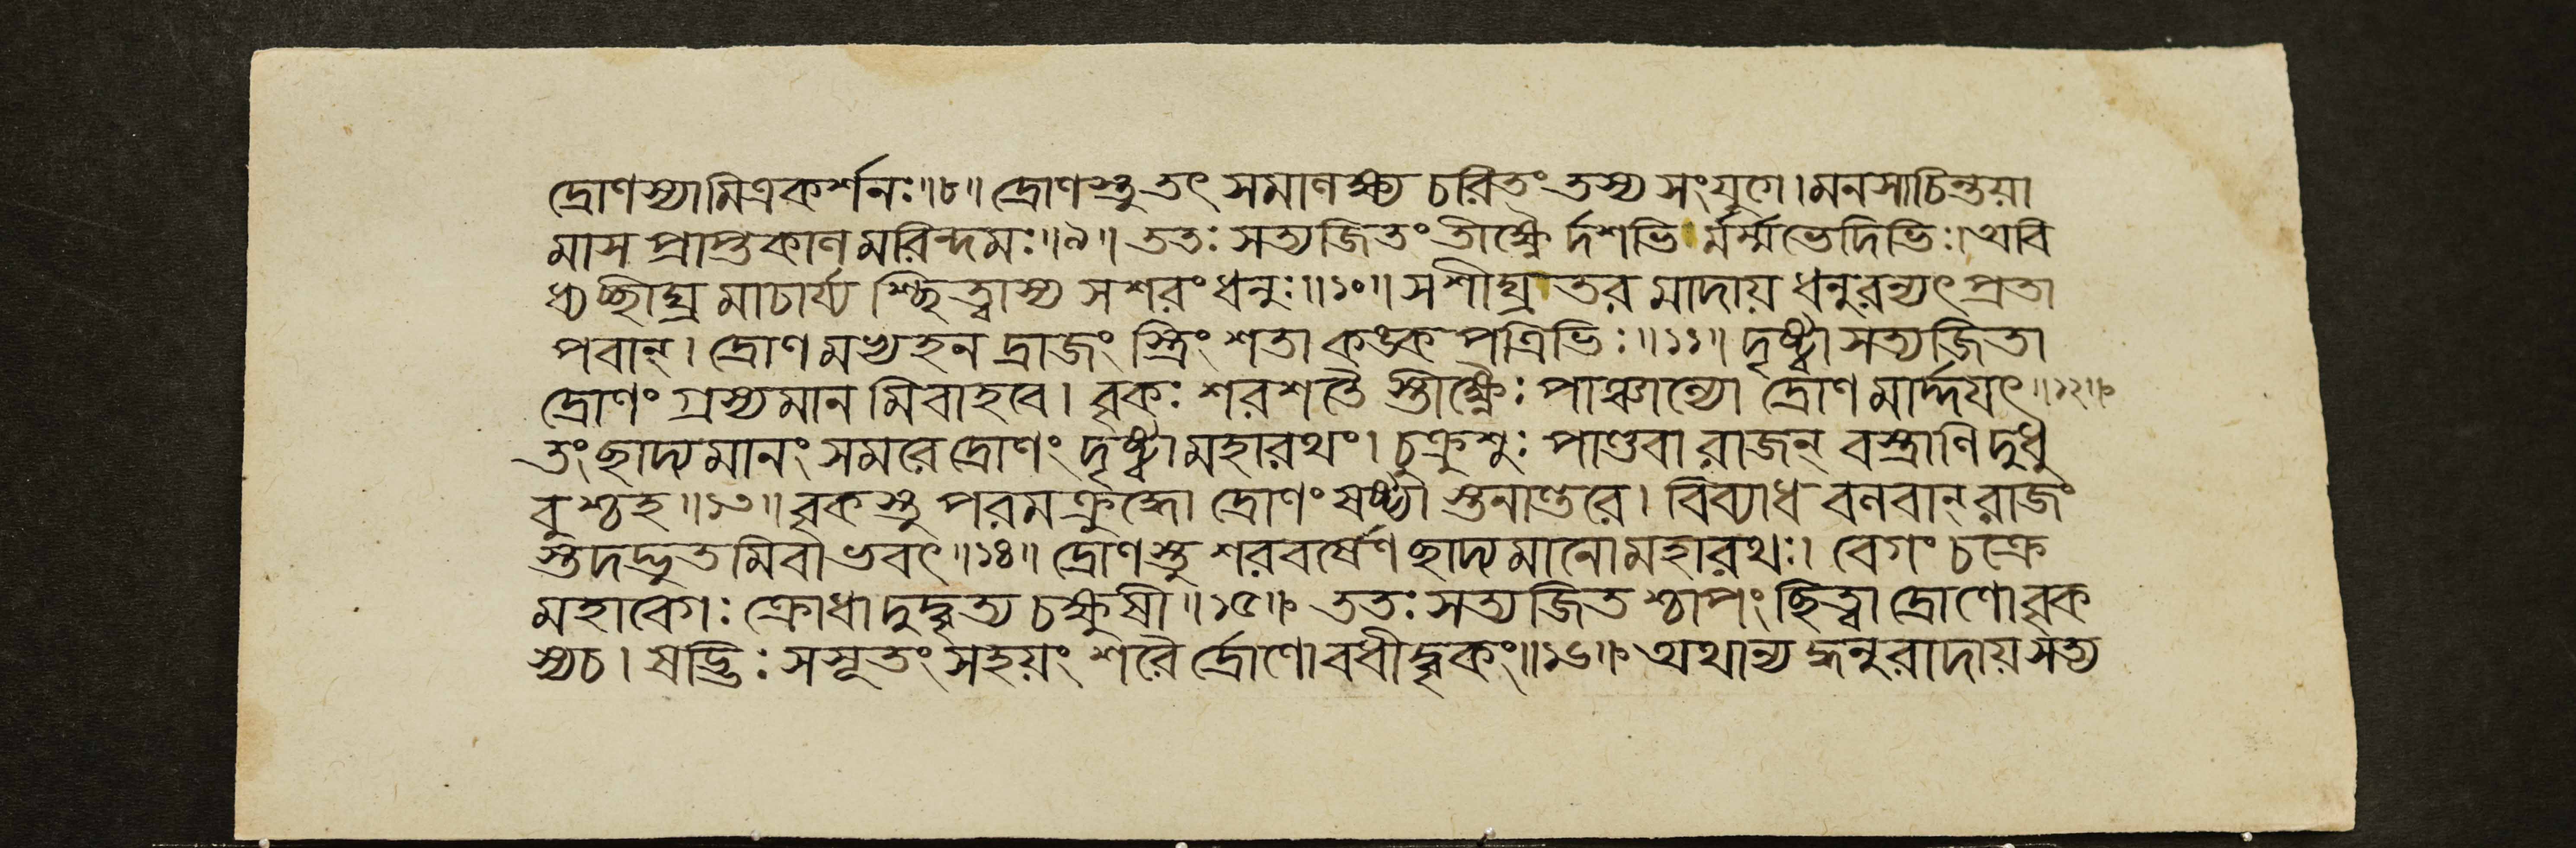 দ্রোণস্যামিত্রকর্শনঃ॥৮॥ দ্রোণস্তু তৎ সমালক্ষ্য চরিতং তস্য সংযুগে। মনসা চিন্তয়া
মাস প্রাপ্তকালমরিন্দমঃ॥৯॥ ততঃ সত্যজিতং তীক্ষ্ণৈর্দশভির্ম্মর্ম্মভেদিভিঃ। অবি
ধ্যচ্ছীঘ্রমাচার্য্যশ্ছিত্ত্বাস্য সশরং ধনুঃ॥১০॥ স শীঘ্রতরমাদায় ধনুরন্যৎ প্রতা
পবান্। দ্রোণমভ্যহনদ্রাজং স্ত্রিংশতা কঙ্কপত্রিভিঃ॥১১॥ দৃষ্ট্বা সত্যজিতা
দ্রোণং গ্রস্যমানমিবাহবে। বৃকঃ শরশতৈস্তীক্ষ্ণৈঃ পাঞ্চাল্যো দ্রোণমার্দ্দয়ৎ॥১২॥
তং ছাদ্যমানং সমরে দ্রোণং দৃষ্ট্বা মহারথং। চুক্রুশুঃ পাণ্ডবা রাজন্ বস্ত্রাণি দুধু
বুশ্চহ॥১৩॥ বৃকস্তু পরমক্রুদ্ধো দ্রোণং ষষ্ট্যা স্তনান্তরে। বিব্যাধ বলবান্ রাজং
স্তদদ্ভুতমিবাভবৎ॥১৪॥ দ্রোণস্তু শরবর্ষেণ ছাদ্যমানো মহারথঃ। বেগং চক্রে
মহাবেগঃ ক্রোধাদুদ্ধৃত্য চক্ষুষী॥১৫॥ ততঃ সত্যজিতশ্চাপং ছিত্ত্বা দ্রোণো বৃক
স্যচ। ষড্ভিঃ সসূতং সহয়ং শরৈর্দ্রোণোবধীদ্বৃকং॥১৬॥ অথান্যদ্ধনুরাদায় সত্য